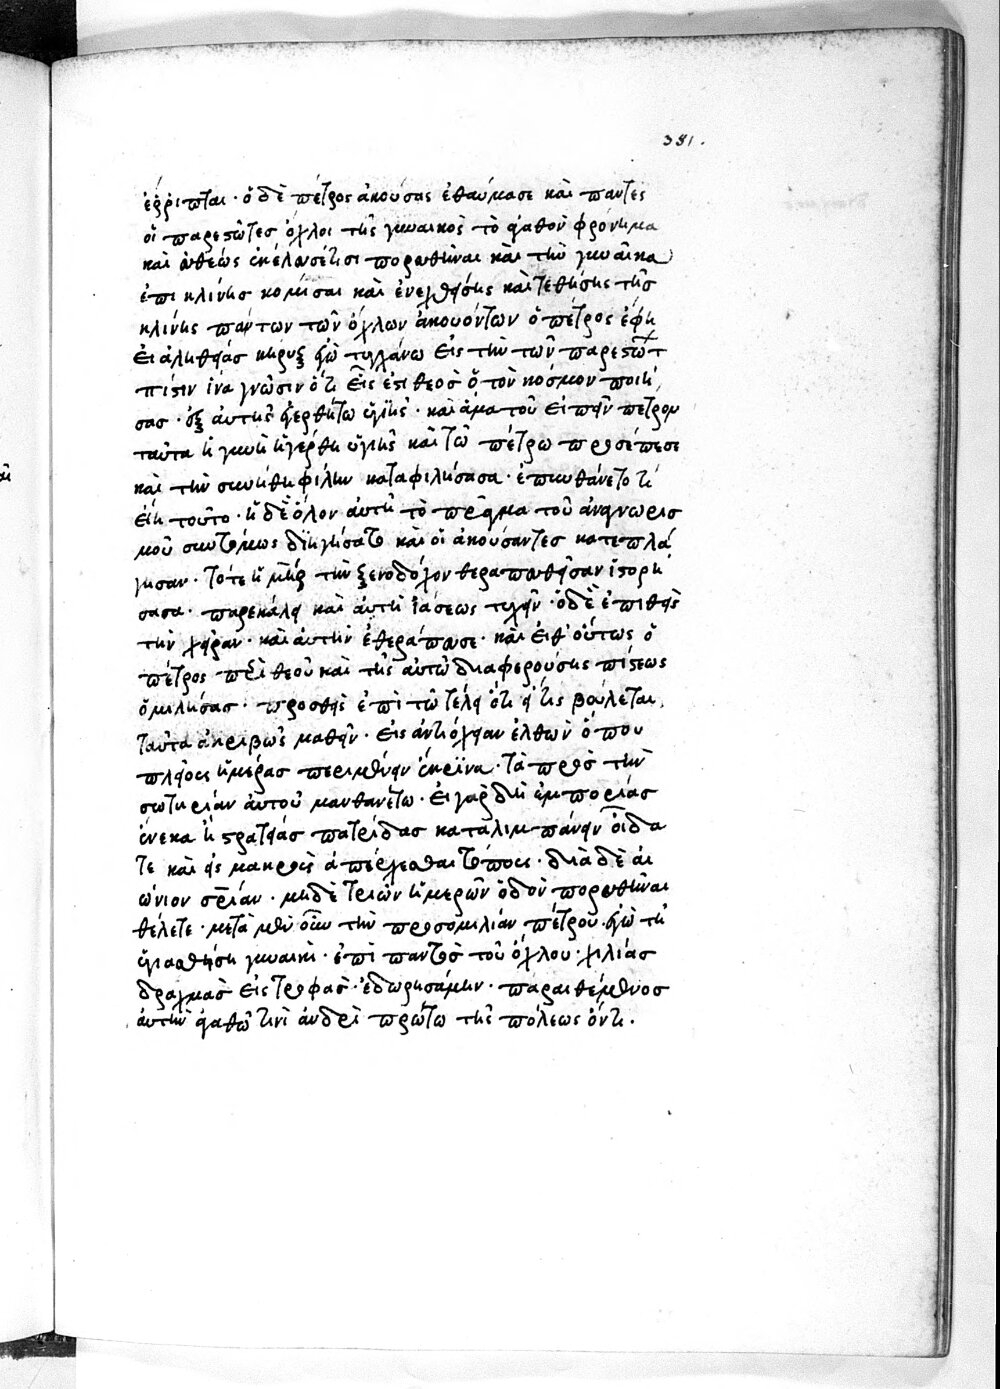 381.
ἔρριπται · ὁ δὲ πέτρος ἀκούσας ἐθαύμασε καὶ πάντες
οἱ παρεστῶτες ὄχλοι τῆς γυναικὸς τὸ ἀγαθὸν φρόνημα
καὶ εὐθέως ἐκέλευσέ τισι πορευθῆναι καὶ τὴν γυναῖκα
ἐπι κλίνης κομίσαι καὶ ἐνεχθείσης καὶ τεθείσης τῆς
κλίνης πάντων τῶν ὄχλων ἀκουόντων ὁ πέτρος ἔφη
Εἰ ἀληθείας κήρυξ ἐγὼ τυγχάνω εἰς τὴν τῶν παρεστώτ
πίστιν ἵνα γνῶσιν ὅτι εἷς ἐστι θεὸς ὁ τὸν κόσμον ποιή
σας · ἐξ αὐτῆς ἐγερθήτω ὑγιής · καὶ ἅμα τοῦ εἰπεῖν πέτρου
ταῦτα ἡ γυνὴ ἠγέρθη ὑγιὴς καὶ τῶ πέτρω προσέπεσε
καὶ τὴν συνήθη φίλην καταφιλήσασα · ἐπυνθάνετο τί
εἴη τοῦτο · ἡ δὲ ὅλον αὐτῆ τὸ πρᾶγμα τοῦ ἀναγνωρισ
μοῦ συντόμως διηγήσατο καὶ οἱ ἀκούσαντες κατεπλά
γησαν · Τότε ἡ μήτηρ τὴν ξενοδόχον θεραπευθεῖσαν ἱστορή
σασα · παρεκάλει καὶ αὐτὴ ἰάσεως τυχεῖν · ὁ δὲ ἐπιθεὶς
τὴν χεῖραν · καὶ αὐτὴν ἐθεράπευσε · καὶ εἶθ' οὕτως ὁ
πέτρος περὶ θεοῦ καὶ τῆς αὐτῶ διαφερούσης πίστεως
ὁμιλήσας · προσθεὶς ἐπὶ τῶ τέλει ὅτι εἴ τις βούλεται
ταῦτα ἀκριβῶς μαθεῖν · Εἰς ἀντιόχειαν ἐλθὼν ὅπου
πλείους ἡμέρας περιμένειν ἔκρινα · Τὰ πρὸς τὴν
σωτηρίαν αὐτοῦ μανθανέτω · Εἰ γὰρ δὴ ἐμπορίας
ἕνεκα ἢ στρατείας πατρίδας καταλιμπάνειν οἴδα
τε καὶ εἰς μακροὺς ἀπέρχεσθαι τόπους · διὰ δὲ αἰ
ώνιον σωτηρίαν · μηδὲ τριῶν ἡμερῶν ὁδὸν πορευθῆναι
θέλετε · μετὰ μὲν οὖν τὴν προσομιλίαν πέτρου · ἐγὼ τῆ
ὑγιασθείση γυναικὶ · ἐπὶ παντὸς τοῦ ὄχλου · χιλίας
δραχμὰς εἰς τροφὰς · ἐδωρησάμην · παραιθέμενος
αὐτὴν ἀγαθῶ τινὶ ἀνδρὶ πρώτω τῆς πόλεως ὄντι .